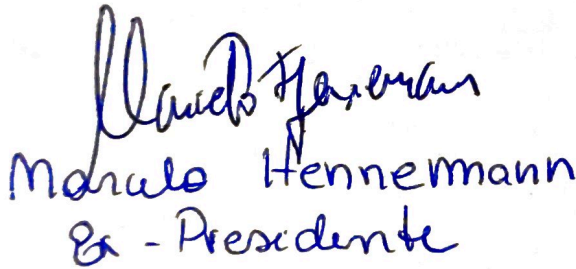 Marcelo Hennemann
Marcelo Hennemann
Ex - Presidente